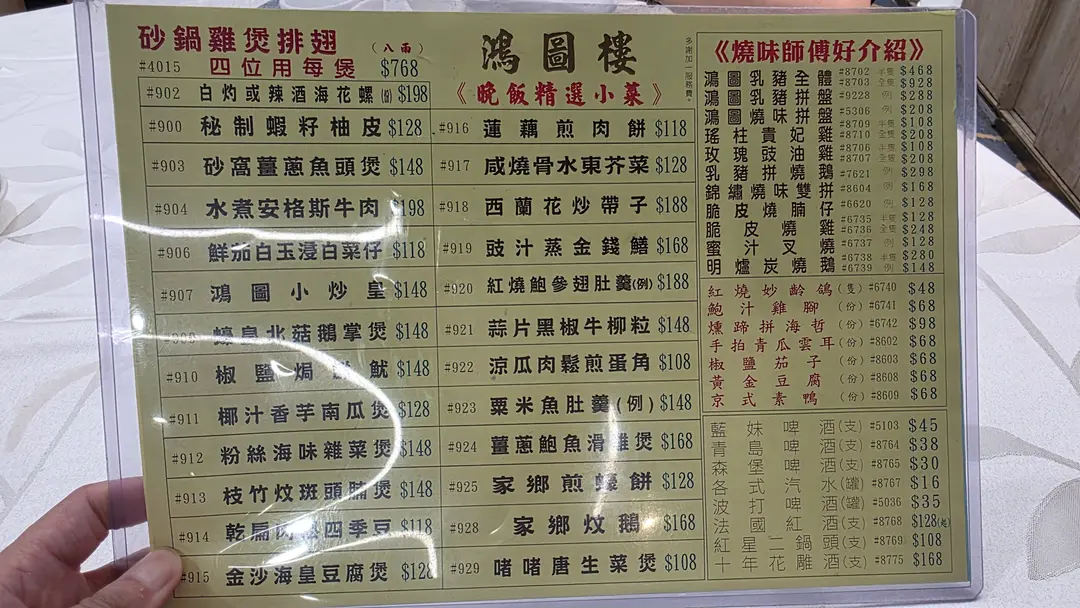 砂鍋雞煲排翅 (八両)
#4015 四位用每煲 $768
鴻圖樓
《晚飯精選小菜》
多謝加一服務費。
#902 白灼或辣酒海花螺(份) $198
#900 秘制蝦籽柚皮 $128
#903 砂窩薑蔥魚頭煲 $148
#904 水煮安格斯牛肉 $198
#906 鮮茄白玉浸白菜仔 $118
#907 鴻圖小炒皇 $148
蠔皇北菇鵝掌煲 $148
#910 椒鹽焗鮮魷 $148
#911 椰汁香芋南瓜煲 $128
#912 粉絲海味雜菜煲 $148
#913 枝竹炆斑頭腩煲 $148
#914 乾扁肉鬆四季豆 $118
#915 金沙海皇豆腐煲 $128
#916 蓮藕煎肉餅 $118
#917 咸燒骨水東芥菜 $128
#918 西蘭花炒帶子 $188
#919 豉汁蒸金錢鱔 $168
#920 紅燒鮑參翅肚羹(例) $188
#921 蒜片黑椒牛柳粒 $148
#922 涼瓜肉鬆煎蛋角 $108
#923 粟米魚肚羹(例) $148
#924 薑蔥鮑魚滑雞煲 $168
#925 家鄉煎蠔餅 $128
#928 家鄉炆鵝 $168
#929 啫啫唐生菜煲 $108
《燒味師傅好介紹》
鴻圖乳豬全體 #8702 半隻 $468
#8703 全隻 $928
鴻圖乳豬拼盤 #9228 例 $288
鴻圖燒味拼盤 #5306 例 $208
瑤柱貴妃雞 #8709 半隻 $108
#8710 全隻 $208
玫瑰豉油雞 #8706 半隻 $108
#8707 全隻 $208
乳豬拼燒鵝 #7621 例 $298
錦繡燒味雙拼 #8604 例 $168
脆皮燒腩仔 #6620 例 $128
脆皮燒雞 #6735 半隻 $128
#6736 全隻 $248
蜜汁叉燒 #6737 例 $128
明爐炭燒鵝 #6738 半隻 $280
#6739 例 $148
紅燒妙齡鴿(隻) #6740 $48
鮑汁雞腳(份) #6741 $68
燻蹄拼海哲(份) #6742 $98
手拍青瓜雲耳(份) #8602 $68
椒鹽茄子(份) #8603 $68
黃金豆腐(份) #8608 $68
京式素鴨(份) #8609 $68
藍妹啤酒(支) #5103 $45
青島啤酒(支) #8764 $38
森堡啤酒(支) #8765 $30
各式汽水(罐) #8767 $16
波打啤酒(罐) #5036 $35
法國紅酒(支) #8768 $128(起)
紅星二鍋頭(支) #8769 $108
十年花雕酒(支) #8775 $168